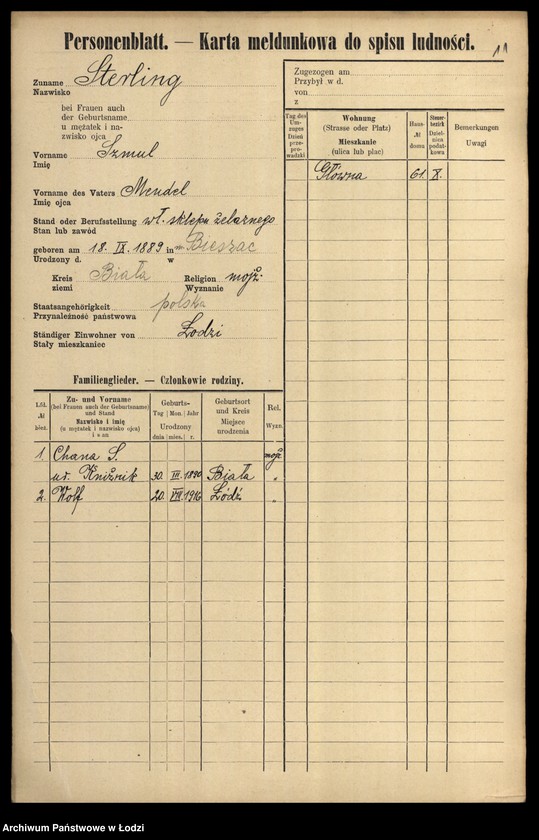 Personenblatt. — Karta meldunkowa do spisu ludności.
11
Zuname Sterling
Nazwisko
bei Frauen auch
der Geburtsname
u mężatek i na-
zwisko ojca
Vorname Szmul
Imię
Vorname des Vaters Mendel
Imię ojca
Stand oder Berufsstellung wł. sklepu żelaznego
Stan lub zawód
geboren am 18. IX. 1889 in
Urodzony d. w
Kreis Biała Religion mojż.
ziemi Wyznanie
Staatsangehörigkeit polska
Przynależność państwowa
Ständiger Einwohner von Łodzi
Stały mieszkaniec
Zugezogen am
Przybył w d.
von
z
Tag des Um-zuges Dzień prze-pro-wadzki
Wohnung (Strasse oder Platz) Mieszkanie (ulica lub plac)
Haus- № domu
Steuer-bezirk Dziel-nica podat-kowa
Bemerkungen Uwagi
Główna 61. X.
Familienglieder. — Członkowie rodziny.
Lfd. № bież.
Zu- und Vorname (bei Frauen auch der Geburtsname) und Stand Nazwisko i imię (u mężatek i nazwisko ojca) i stan
Geburts- Tag Mon. Jahr Urodzony dnia mies. r.
Geburtsort und Kreis Miejsce urodzenia
Rel. Wyzn.
1. Chana S. mojż
ur. 30. III. 1890 Biała "
2. Wolf 20. VIII 1916 Łódź "
Archiwum Państwowe w Łodzi